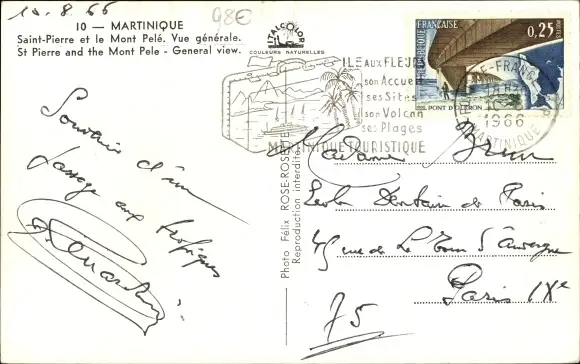 10.8.66
98€
10 — MARTINIQUE
Saint-Pierre et le Mont Pelé. Vue générale.
St Pierre and the Mont Pele - General view.
ITALCOLOR
COULEURS NATURELLES
RÉPUBLIQUE FRANÇAISE
0,25
POSTES
PONT D'OLÉRON
ILE AUX FLEURS
son Accueil
ses Sites
son Volcan
ses Plages
MARTINIQUE TOURISTIQUE
1966
MARTINIQUE
Souvenir d'un
passage aux tropiques
Photo Félix ROSE-ROSETTE
Reproduction interdite
Madame Brun
Ecole Dentaire de Paris
45 rue de La Tour d'Auvergne
Paris IXe
75